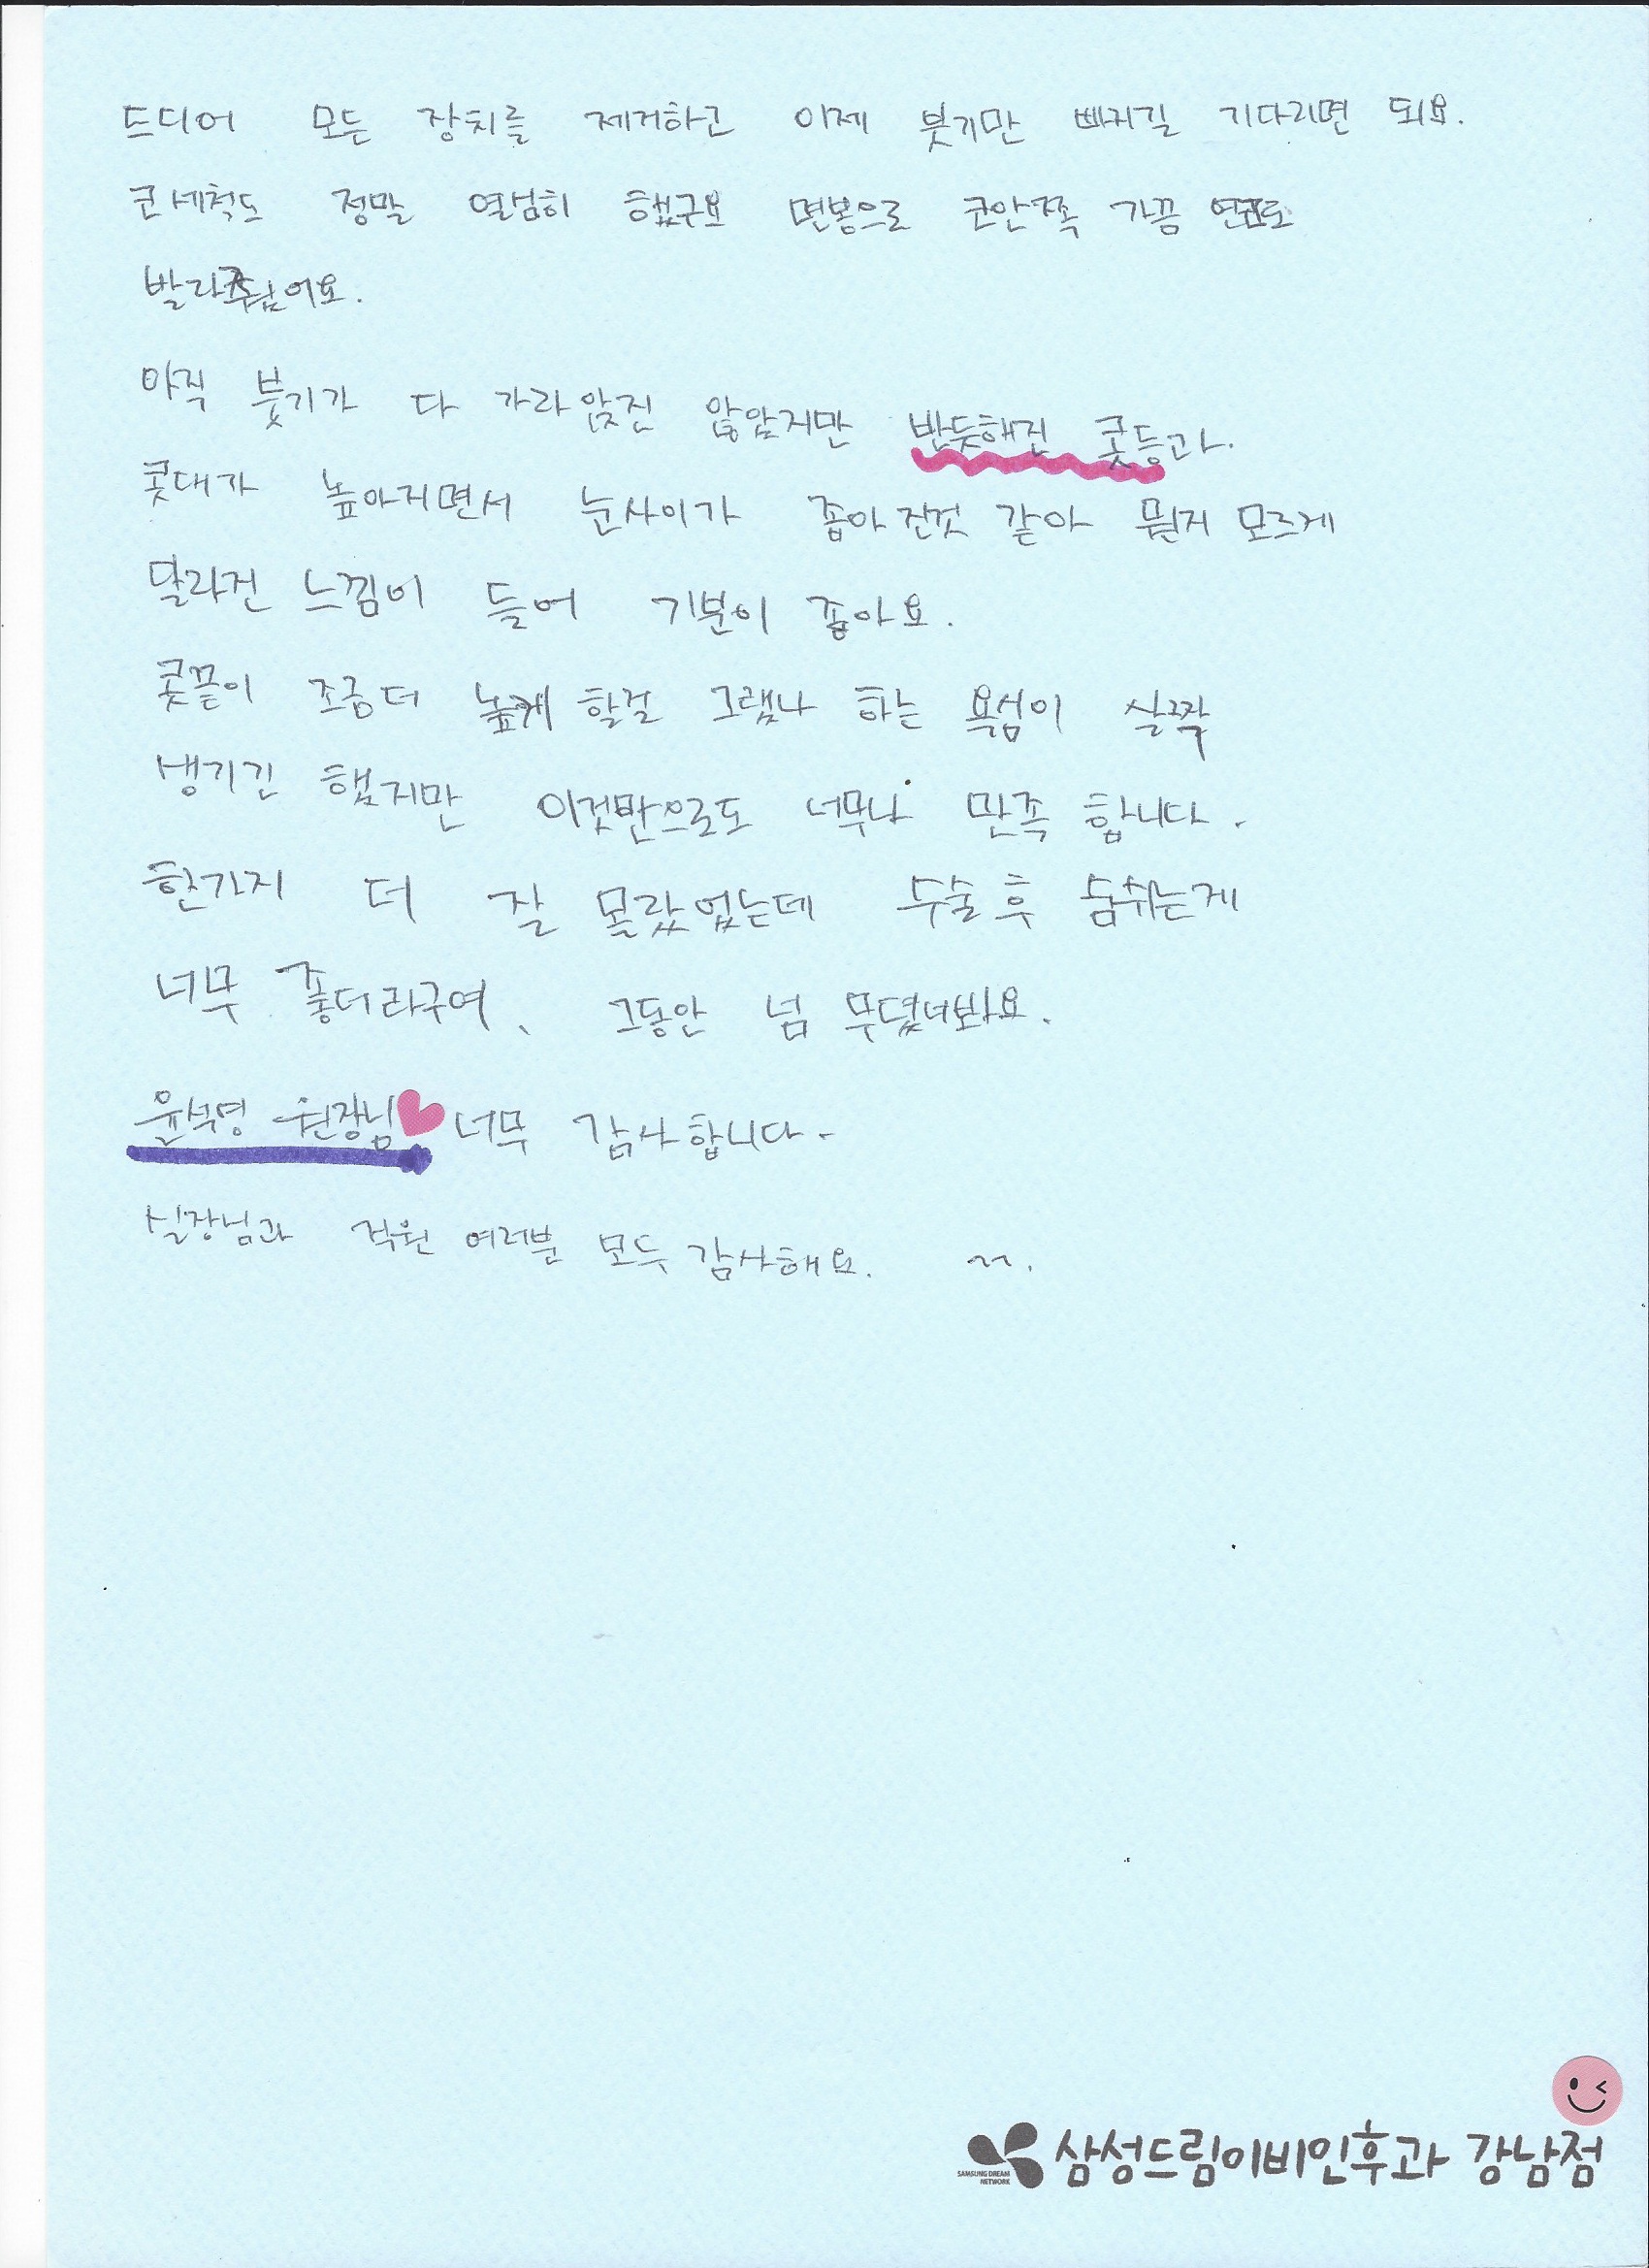 드디어 모든 장치를 제거하고 이제 붓기만 빠지길 기다리면 되요.
코세척도 정말 열심히 했구요 면봉으로 코안쪽 가끔 연고로
발라주었어요.
아직 붓기가 다 가라앉진 않았지만 반듯해진 콧등과.
콧대가 높아지면서 눈사이가 좁아진것 같아 뭔지 모르게
달라진 느낌이 들어 기분이 좋아요.
콧끝이 조금더 높게 할걸 그랬나 하는 욕심이 살짝
생기긴 했지만 이것만으로도 너무나 만족 합니다.
한가지 더 잘 몰랐었는데 수술후 숨쉬는게
너무 좋더라구여. 그동안 넘 무뎠너봐요.
윤석영 원장님 너무 감사합니다-
실장님과 직원 여러분 모두 감사해요. ~~.
SAMSUNG DREAM NETWORK 삼성드림이비인후과 강남점